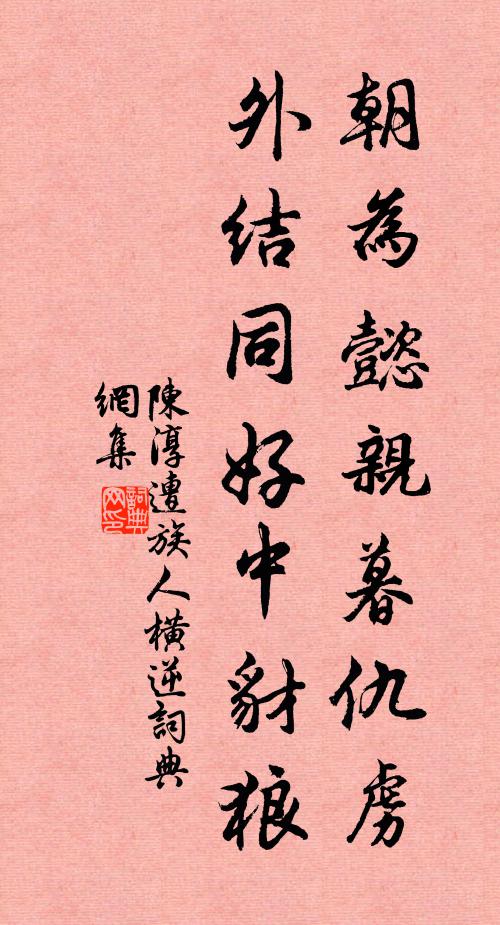 朝為懿親暮仇虜
外結同好中豺狼
陳淳遭族人橫逆詞典
網集
詞典
网印